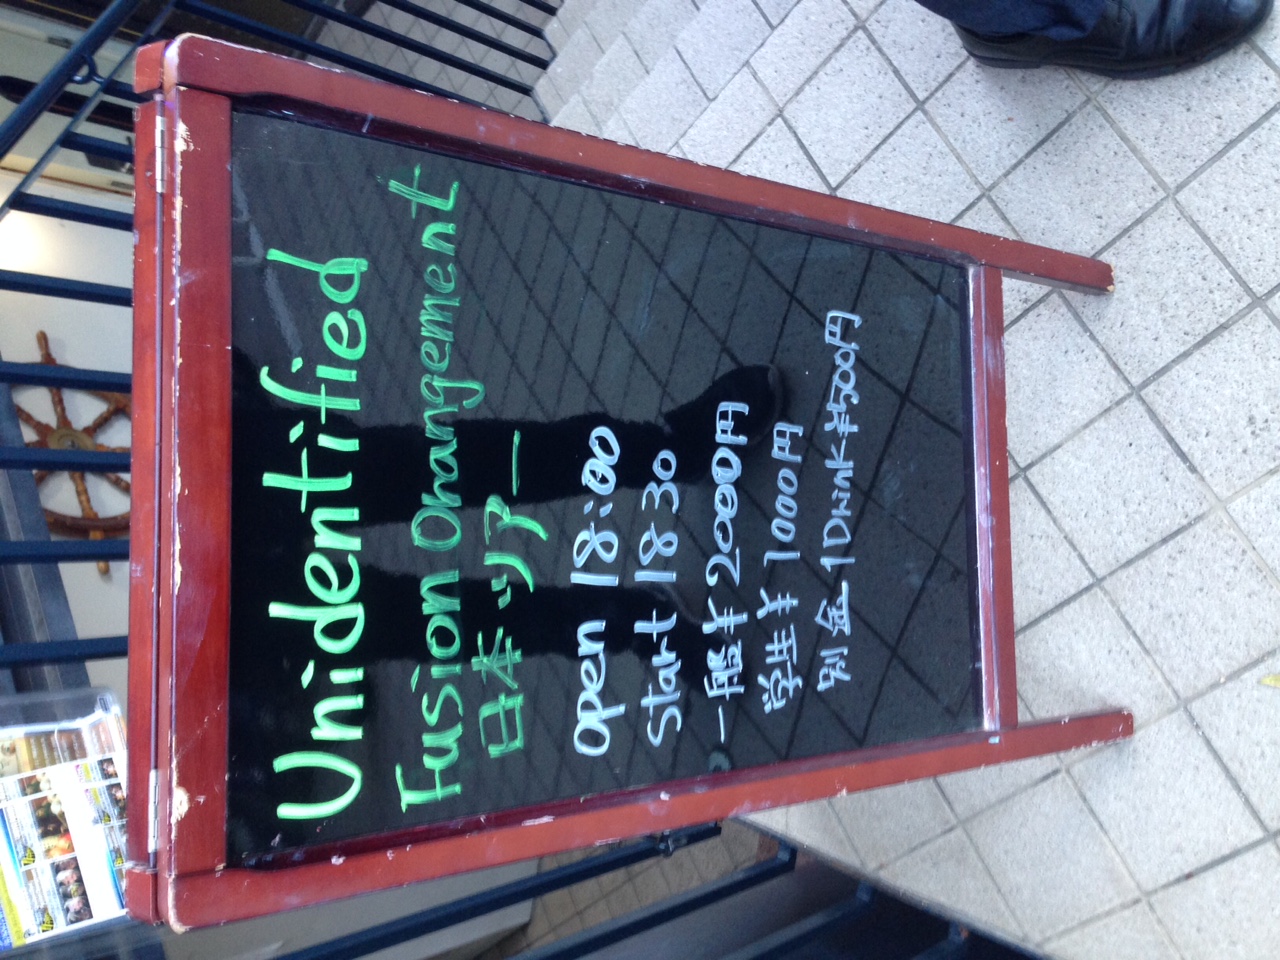 Unidentified
Fusion Ohangement
日本ツアー
open 18:00
start 18 30
一般 ¥2000円
学生 ¥1000円
別金 1Drink ¥500円